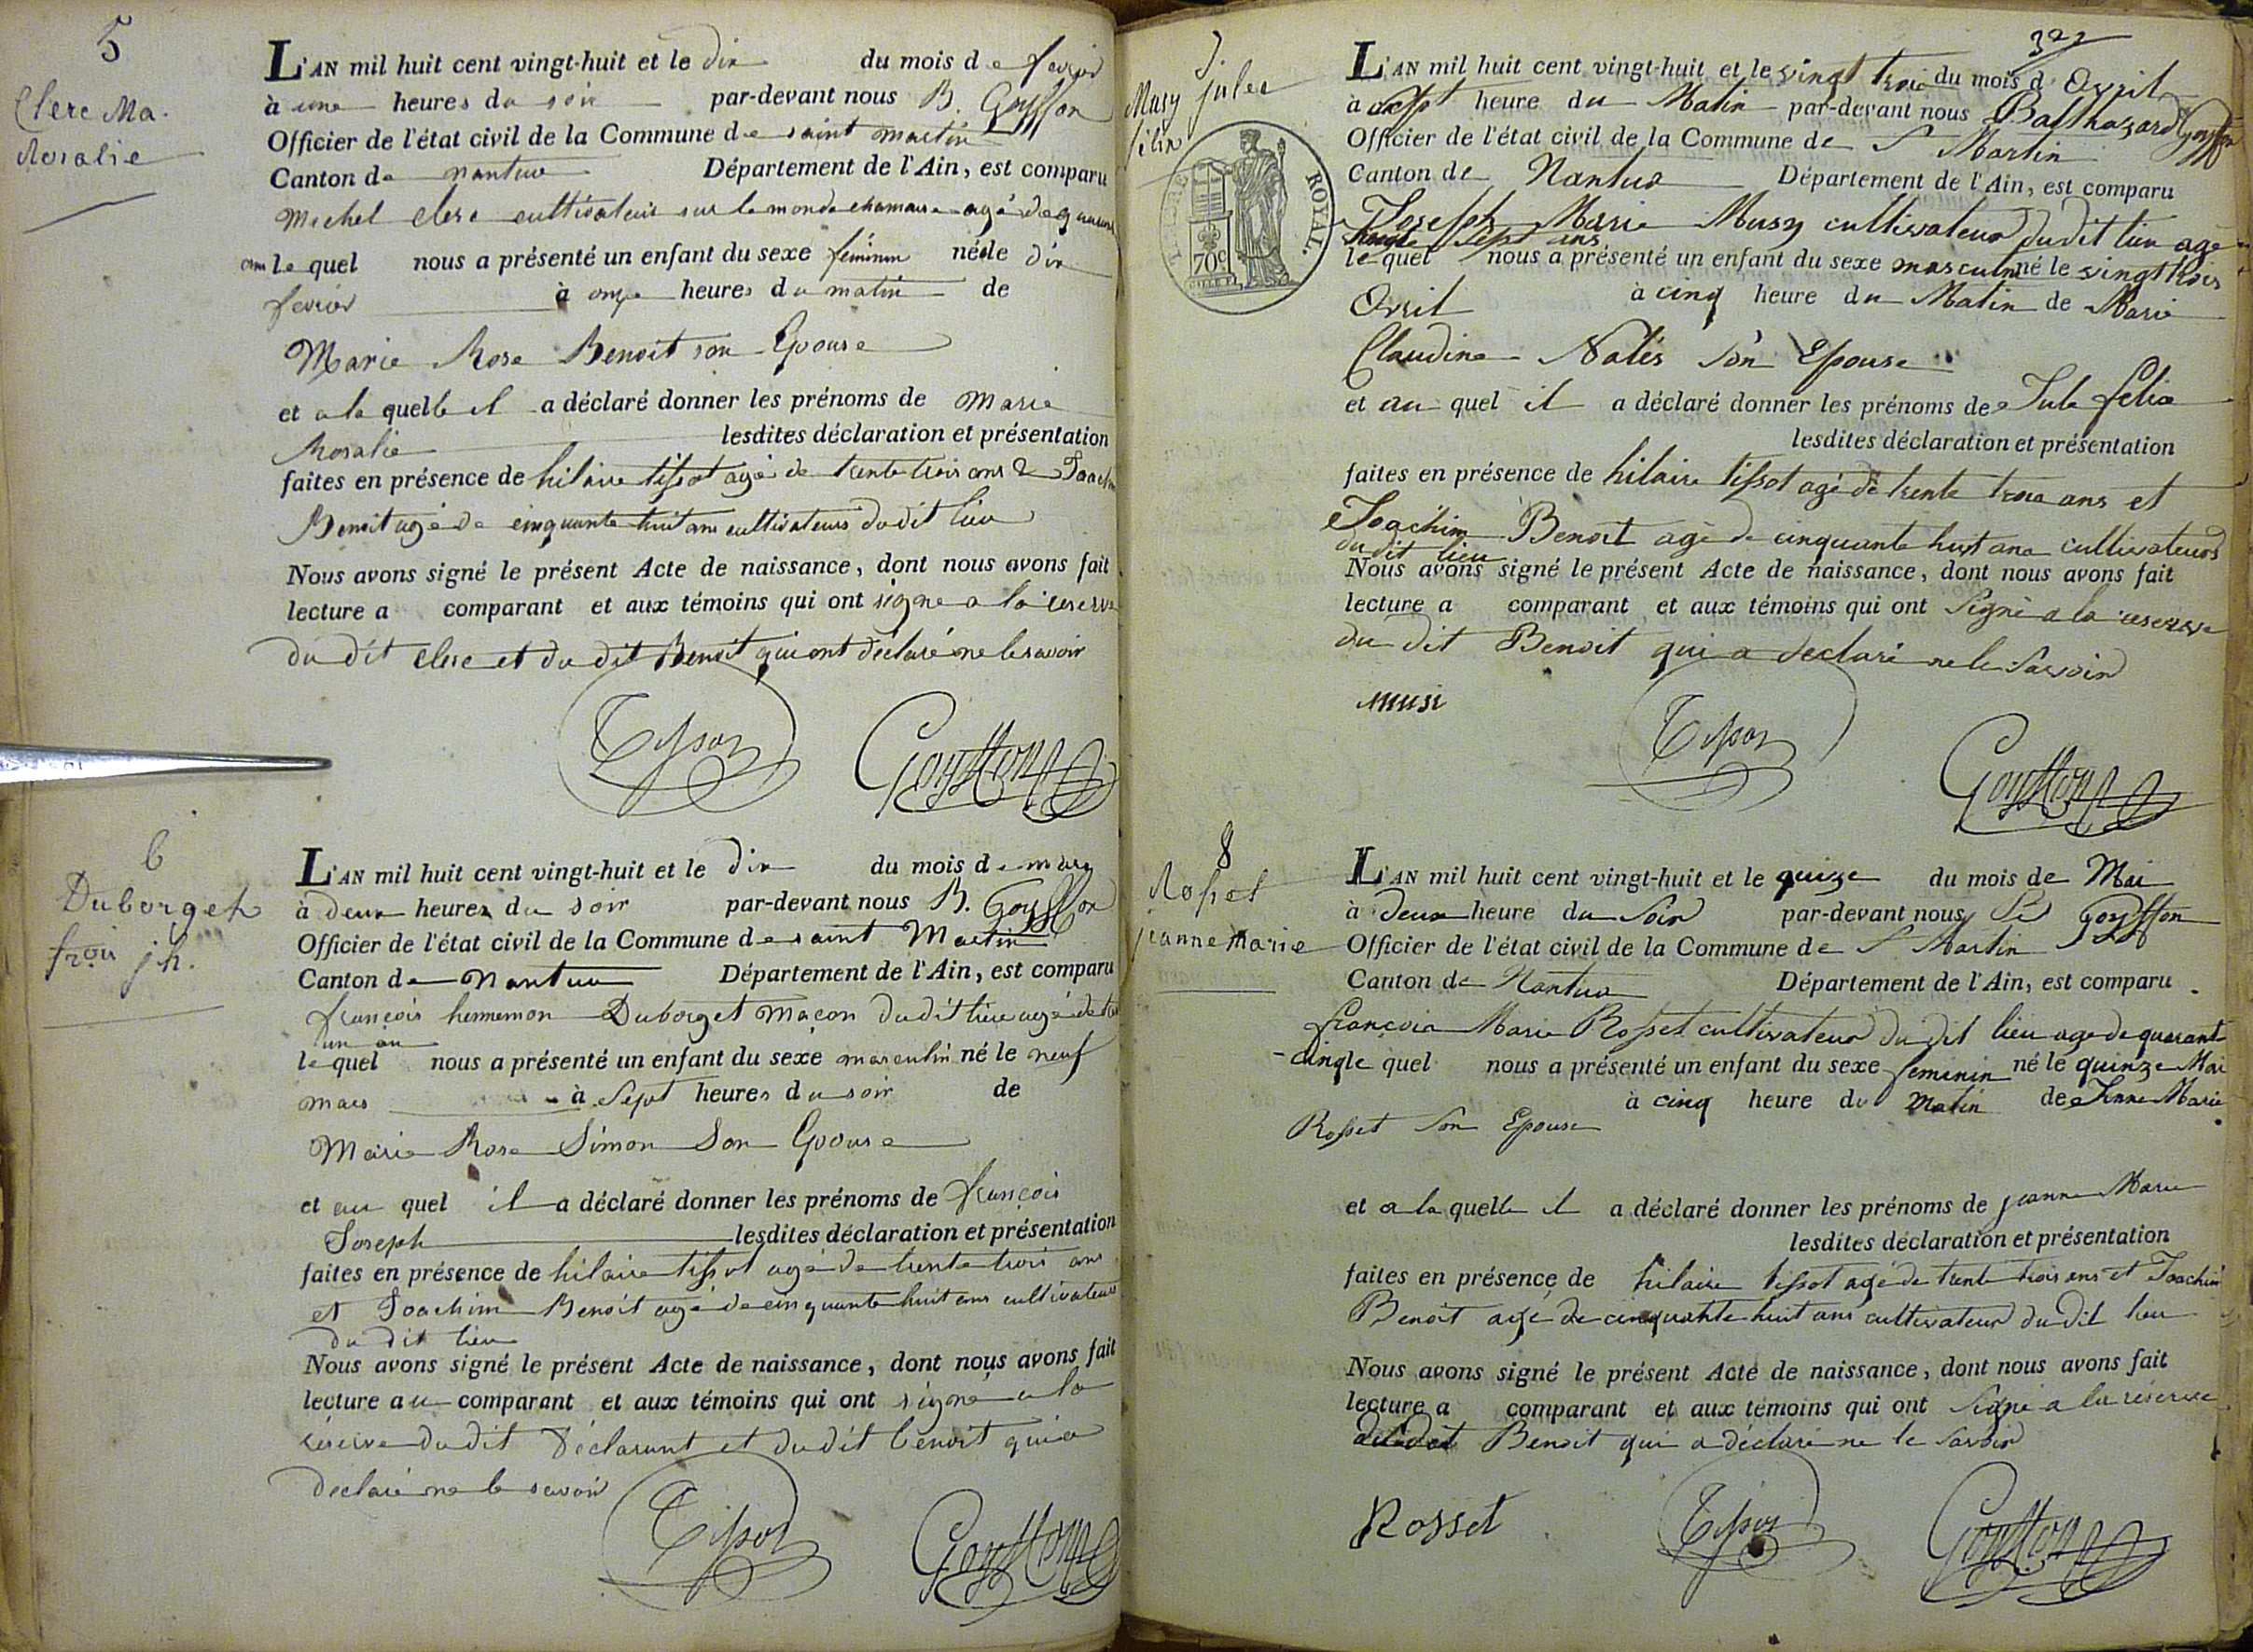 5
Clerc Ma.
Rosalie
L'AN mil huit cent vingt-huit et le dix du mois de fevrier
à une heures du soir par-devant nous B. Goyffon
Officier de l'état civil de la Commune de saint martin
Canton de nantua Département de l'Ain, est comparu
Michel clerc cultivateur sur le mond agé de
ans le quel nous a présenté un enfant du sexe féminin née le dix
fevrier à onze heures du matin de
Marie Rose Benoit son Epouse
et a la quelle il a déclaré donner les prénoms de Marie
Rosalie lesdites déclaration et présentation
faites en présence de hilaire tissot agé de trente trois ans & Joachim
Benoit agé de cinquante huit ans cultivateurs du dit lieu
Nous avons signé le présent Acte de naissance, dont nous avons fait
lecture a comparant et aux témoins qui ont signé a la reserve
du dit clerc et du dit Benoit qui ont déclaré ne le savoir
Tissot Goyffon
6
Duborget
frois jh.
L'AN mil huit cent vingt-huit et le dix du mois de mars
à deux heures du soir par-devant nous B. Goyffon
Officier de l'état civil de la Commune de saint Martin
Canton de Nantua Département de l'Ain, est comparu
françois Duborget maçon du dit lieu agé de
un an
le quel nous a présenté un enfant du sexe masculin né le neuf
mars à sept heures du soir de
Marie Rose Simon Son Epouse
et au quel il a déclaré donner les prénoms de françois
Joseph lesdites déclaration et présentation
faites en présence de hilaire tissot agé de trente trois ans
et Joachim Benoit agé de cinquante huit ans cultivateurs
du dit lieu
Nous avons signé le présent Acte de naissance, dont nous avons fait
lecture au comparant et aux témoins qui ont signé a la
réserve du dit déclarant et du dit benoit qui a
declaré ne le savoir
Tissot Goyffon
322
7
Musy jules
félix
ROYAL.
70c
L'AN mil huit cent vingt-huit et le vingt trois du mois d'Avril
à sept heure du Matin par-devant nous Balthazard Goyffon
Officier de l'état civil de la Commune de St Martin
Canton de Nantua Département de l'Ain, est comparu
Joseph Marie Musy cultivateur du dit lieu agé
sept ans
le quel nous a présenté un enfant du sexe masculin né le vingt trois
Avril à cinq heure du Matin de Marie
Claudine Nalés Son Epouse
et au quel il a déclaré donner les prénoms de Jule felix
lesdites déclaration et présentation
faites en présence de hilaire tissot agé de trente trois ans et
Joachim Benoit agé de cinquante huit ans cultivateurs
du dit lieu
Nous avons signé le présent Acte de naissance, dont nous avons fait
lecture a comparant et aux témoins qui ont Signé a la reserve
du dit Benoit qui a declaré ne le Savoir
musi Tissot Goyffon
8
Rosset
jeanne marie
L'AN mil huit cent vingt-huit et le quize du mois de Mai
à deux heure du Soir par-devant nous Goyffon
Officier de l'état civil de la Commune de St Martin
Canton de Nantua Département de l'Ain, est comparu
françois Marie Rosset cultivateur du dit lieu agé de quarant
-cinq le quel nous a présenté un enfant du sexe feminin né le quinze Mai
à cinq heure du Matin de Jeanne Marie
Rosset Son Epouse
et a la quelle il a déclaré donner les prénoms de jeanne Marie
lesdites déclaration et présentation
faites en présence de hilaire tissot agé de trente trois ans et Joachim
Benoit agé de cinquante huit ans cultivateurs du dit lieu
Nous avons signé le présent Acte de naissance, dont nous avons fait
lecture a comparant et aux témoins qui ont Signé a la réserve
du dit Benoit qui a déclaré ne le Savoir
Rosset Tissot Goyffon